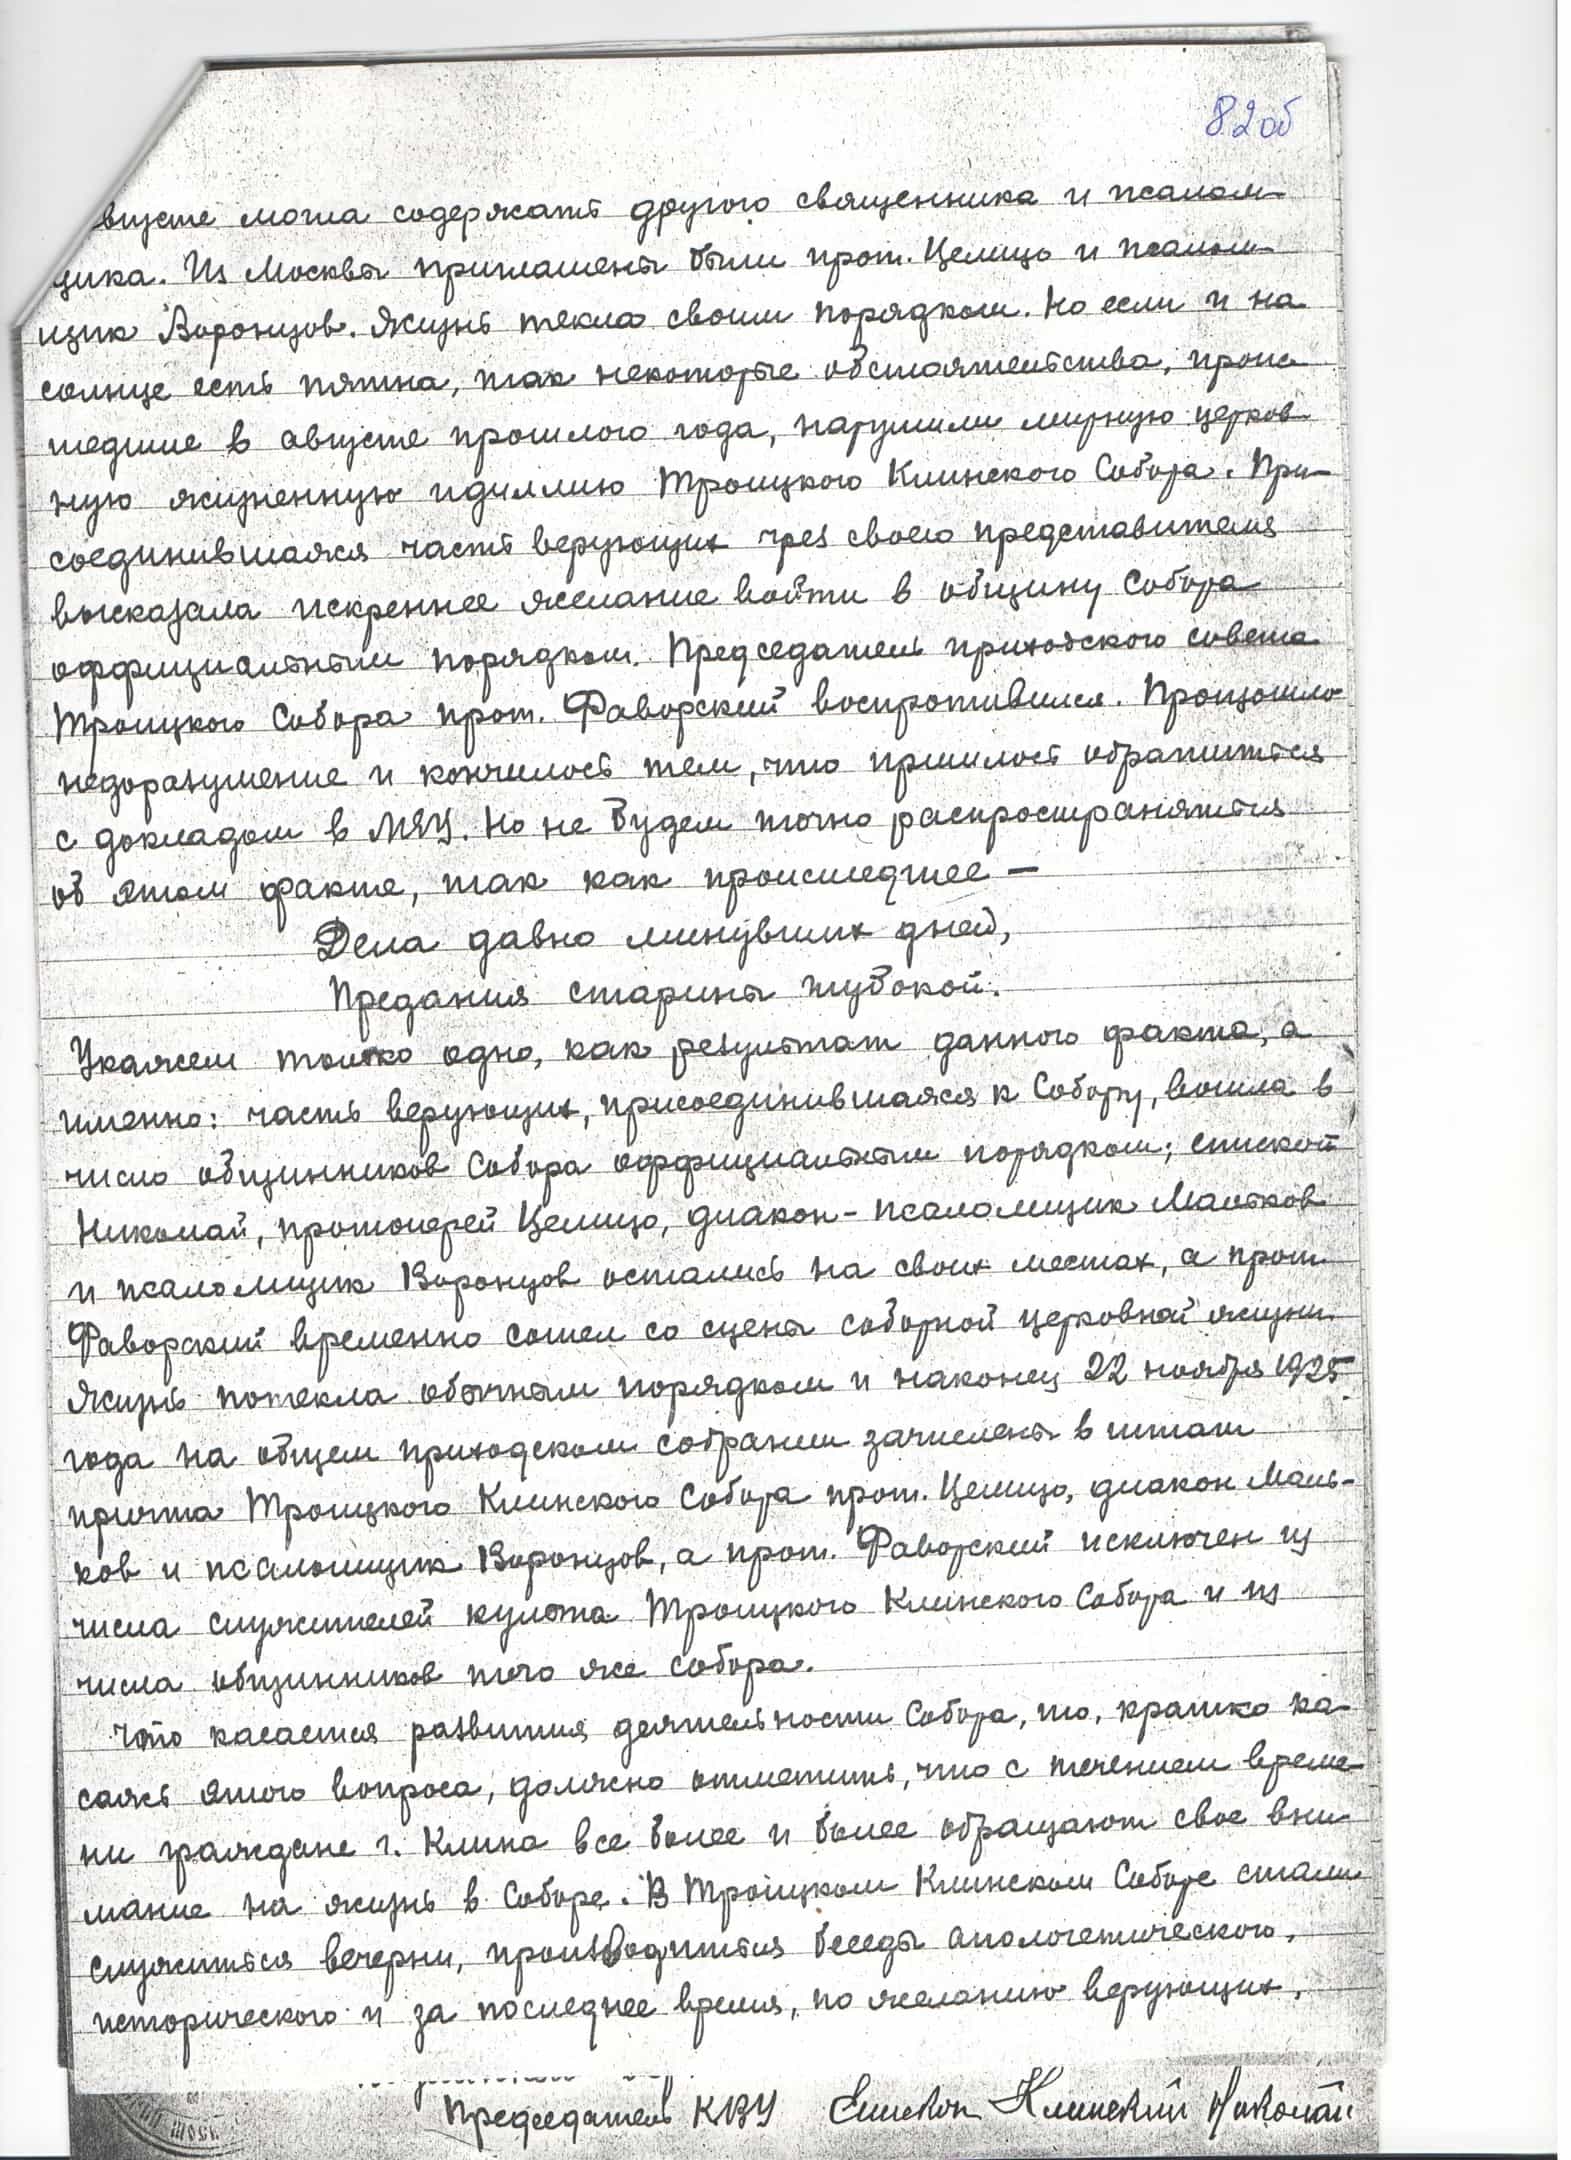 82 об
августе могла содержать другого священника и псалом-
щика. Из Москвы приглашены были прот. Целицо и псалом-
щик Воронцов. Жизнь текла своим порядком. Но если и на
солнце есть пятна, так некоторые обстоятельства, проис-
шедшие в августе прошлого года, нарушили мирную церков-
ную жизненную идиллию Троицкого Клинского Собора. При-
соединившаяся часть верующих чрез своего представителя
высказала искреннее желание войти в общину Собора
оффициальным порядком. Председатель приходского совета
Троицкого Собора прот. Фаворский воспротивился. Произошло
недоразумение и кончилось тем, что пришлось обратиться
с докладом в МЕУ. Но не будем точно распространяться
об этом факте, так как происшедшее —
Дела давно минувших дней,
Предания старины глубокой.
Укажем только одно, как результат данного факта, а
именно: часть верующих, присоединившаяся к Собору, вошла в
число общинников Собора оффициальным порядком; епископ
Николай, протоиерей Целицо, диакон-псаломщик Мальков
и псаломщик Воронцов остались на своих местах, а прот.
Фаворский временно сошел со сцены соборной церковной жизни.
Жизнь потекла обычным порядком и наконец 22 ноября 1925
года на общем приходском собрании зачислены в штат
причта Троицкого Клинского Собора прот. Целицо, диакон Маль-
ков и псаломщик Воронцов, а прот. Фаворский исключен из
числа служителей культа Троицкого Клинского Собора и из
числа общинников того же собора.
Что касается развития деятельности Собора, то, кратко ка-
саясь этого вопроса, должно отметить, что с течением време-
ни граждане г. Клина все более и более обращают свое вни-
мание на жизнь в Соборе. В Троицком Клинском Соборе стали
служиться вечерни, производиться беседы апологетического,
исторического и за последнее время, по желанию верующих,
Председатель КВУ Епископ Клинский Николай